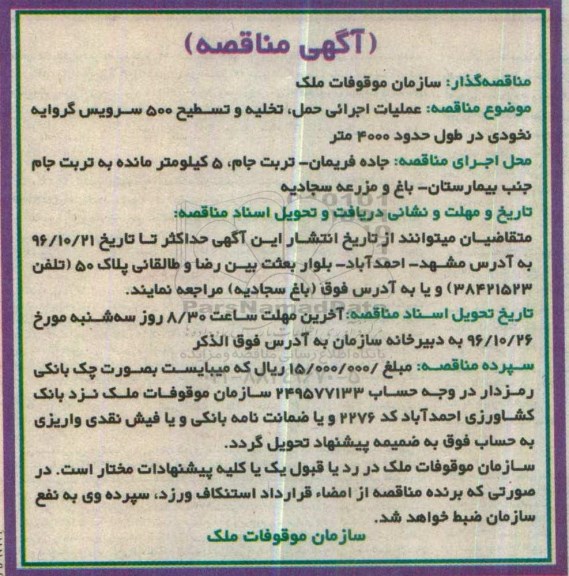 (آگهی مناقصه)
مناقصه‌گذار: سازمان موقوفات ملک
موضوع مناقصه: عملیات اجرائی حمل، تخلیه و تسطیح ۵۰۰ سرویس گروایه
نخودی در طول حدود ۴۰۰۰ متر
محل اجرای مناقصه: جاده فریمان- تربت جام، ۵ کیلومتر مانده به تربت جام
جنب بیمارستان- باغ و مزرعه سجادیه
تاریخ و مهلت و نشانی دریافت و تحویل اسناد مناقصه:
متقاضیان میتوانند از تاریخ انتشار این آگهی حداکثر تا تاریخ ۹۶/۱۰/۲۱
به آدرس مشهد- احمدآباد- بلوار بعثت بین رضا و طالقانی پلاک ۵۰ (تلفن
۳۸۴۲۱۵۲۳) و یا به آدرس فوق (باغ سجادیه) مراجعه نمایند.
ParsNamadData
تاریخ تحویل اسناد مناقصه: آخرین مهلت ساعت ۸/۳۰ روز سه‌شنبه مورخ
۹۶/۱۰/۲۶ به دبیرخانه سازمان به آدرس فوق الذکر
پایگاه اطلاع رسانی مناقصه و مزایده
سپرده مناقصه: مبلغ /۱۵/۰۰۰/۰۰۰ ریال که میبایست بصورت چک بانکی
رمزدار در وجه حساب ۲۴۹۵۷۷۱۳۳ سازمان موقوفات ملک نزد بانک
کشاورزی احمدآباد کد ۲۲۷۶ و یا ضمانت نامه بانکی و یا فیش نقدی واریزی
به حساب فوق به ضمیمه پیشنهاد تحویل گردد.
سازمان موقوفات ملک در رد یا قبول یک یا کلیه پیشنهادات مختار است. در
صورتی که برنده مناقصه از امضاء قرارداد استنکاف ورزد، سپرده وی به نفع
سازمان ضبط خواهد شد.
سازمان موقوفات ملک